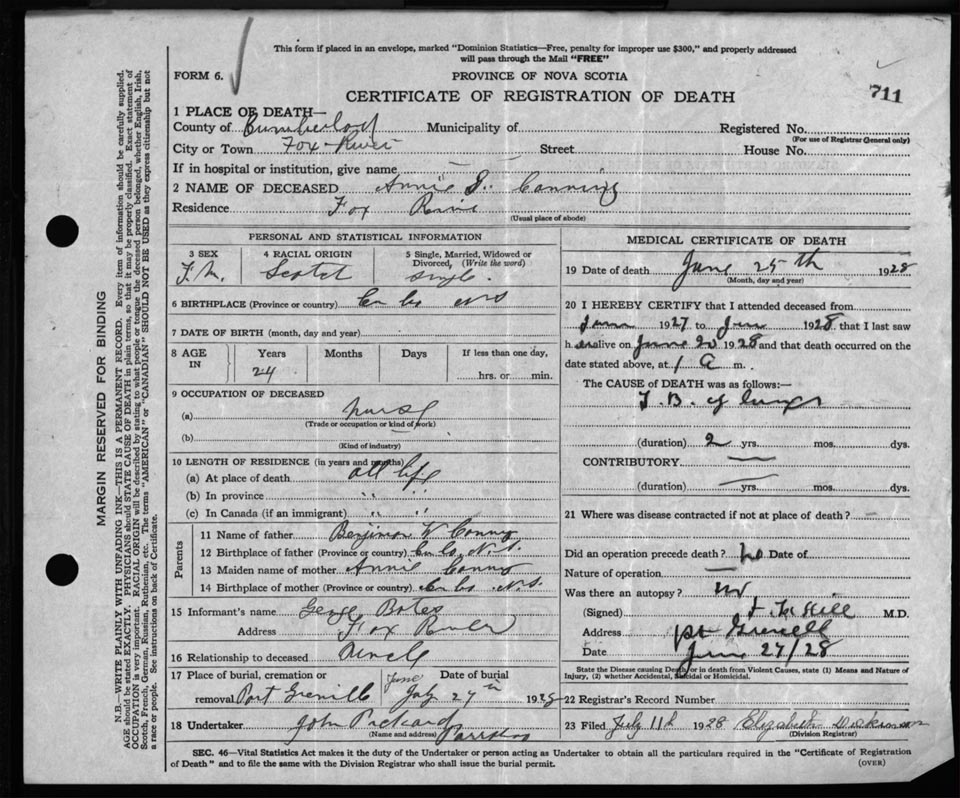 This form if placed in an envelope, marked "Dominion Statistics—Free, penalty for improper use $300," and properly addressed
will pass through the Mail "FREE"
FORM 6.
PROVINCE OF NOVA SCOTIA
CERTIFICATE OF REGISTRATION OF DEATH
711
1 PLACE OF DEATH—
County of Cumberland Municipality of Registered No.
(For use of Registrar General only)
City or Town Fox River Street House No.
If in hospital or institution, give name
2 NAME OF DECEASED Annie S. Canning
Residence Fox River
(Usual place of abode)
PERSONAL AND STATISTICAL INFORMATION
3 SEX 4 RACIAL ORIGIN 5 Single, Married, Widowed or Divorced, (Write the word)
F.M. Scotch Single.
6 BIRTHPLACE (Province or country) Cum Co NS
7 DATE OF BIRTH (month, day and year)
8 AGE IN Years Months Days If less than one day,
24 hrs. or min.
9 OCCUPATION OF DECEASED
(a) nurse
(Trade or occupation or kind of work)
(b)
(Kind of industry)
10 LENGTH OF RESIDENCE (in years and months)
(a) At place of death all life
(b) In province " "
(c) In Canada (if an immigrant) " "
Parents
11 Name of father Benjimon W
12 Birthplace of father (Province or country) Cum Co. N.S.
13 Maiden name of mother Annie
14 Birthplace of mother (Province or country) Cum Co. N.S.
15 Informant's name George Bates
Address Fox River
16 Relationship to deceased Uncle
17 Place of burial, cremation or removal Port Greville Date of burial June July 27th 1928
18 Undertaker John Pickard Parrsboro
(Name and address)
MEDICAL CERTIFICATE OF DEATH
19 Date of death June 25th 1928
(Month, day and year)
20 I HEREBY CERTIFY that I attended deceased from
1927 to June 1928 that I last saw
her alive on June 20 1928 and that death occurred on the
date stated above, at 1 A m.
The CAUSE OF DEATH was as follows:—
T. B. of lungs
(duration) 2 yrs. mos. dys.
CONTRIBUTORY
(duration) yrs. mos. dys.
21 Where was disease contracted if not at place of death?
Did an operation precede death? No Date of
Nature of operation
Was there an autopsy? No
(Signed) Hill M.D.
Address Pt Greville
Date June 27/28
State the Disease causing Death, or in death from Violent Causes, state (1) Means and Nature of
Injury, (2) whether Accidental, Suicidal or Homicidal.
22 Registrar's Record Number
23 Filed July 11th 1928 Elizabeth
(Division Registrar)
SEC. 46—Vital Statistics Act makes it the duty of the Undertaker or person acting as Undertaker to obtain all the particulars required in the "Certificate of Registration
of Death" and to file the same with the Division Registrar who shall issue the burial permit.
(OVER)
MARGIN RESERVED FOR BINDING
N.B.—WRITE PLAINLY WITH UNFADING INK—THIS IS A PERMANENT RECORD. Every item of information should be carefully supplied.
AGE should be stated EXACTLY. PHYSICIANS should STATE CAUSE OF DEATH in plain terms, so that it may be properly classified. Exact statement of
OCCUPATION is very important. RACIAL ORIGIN will be described by stating to what people or tongue the deceased person belonged, whether English, Irish,
Scotch, French, German, Russian, Ruthenian, etc. The terms "AMERICAN" or "CANADIAN" SHOULD NOT BE USED as they express citizenship but not
a race or people. See instructions on back of Certificate.